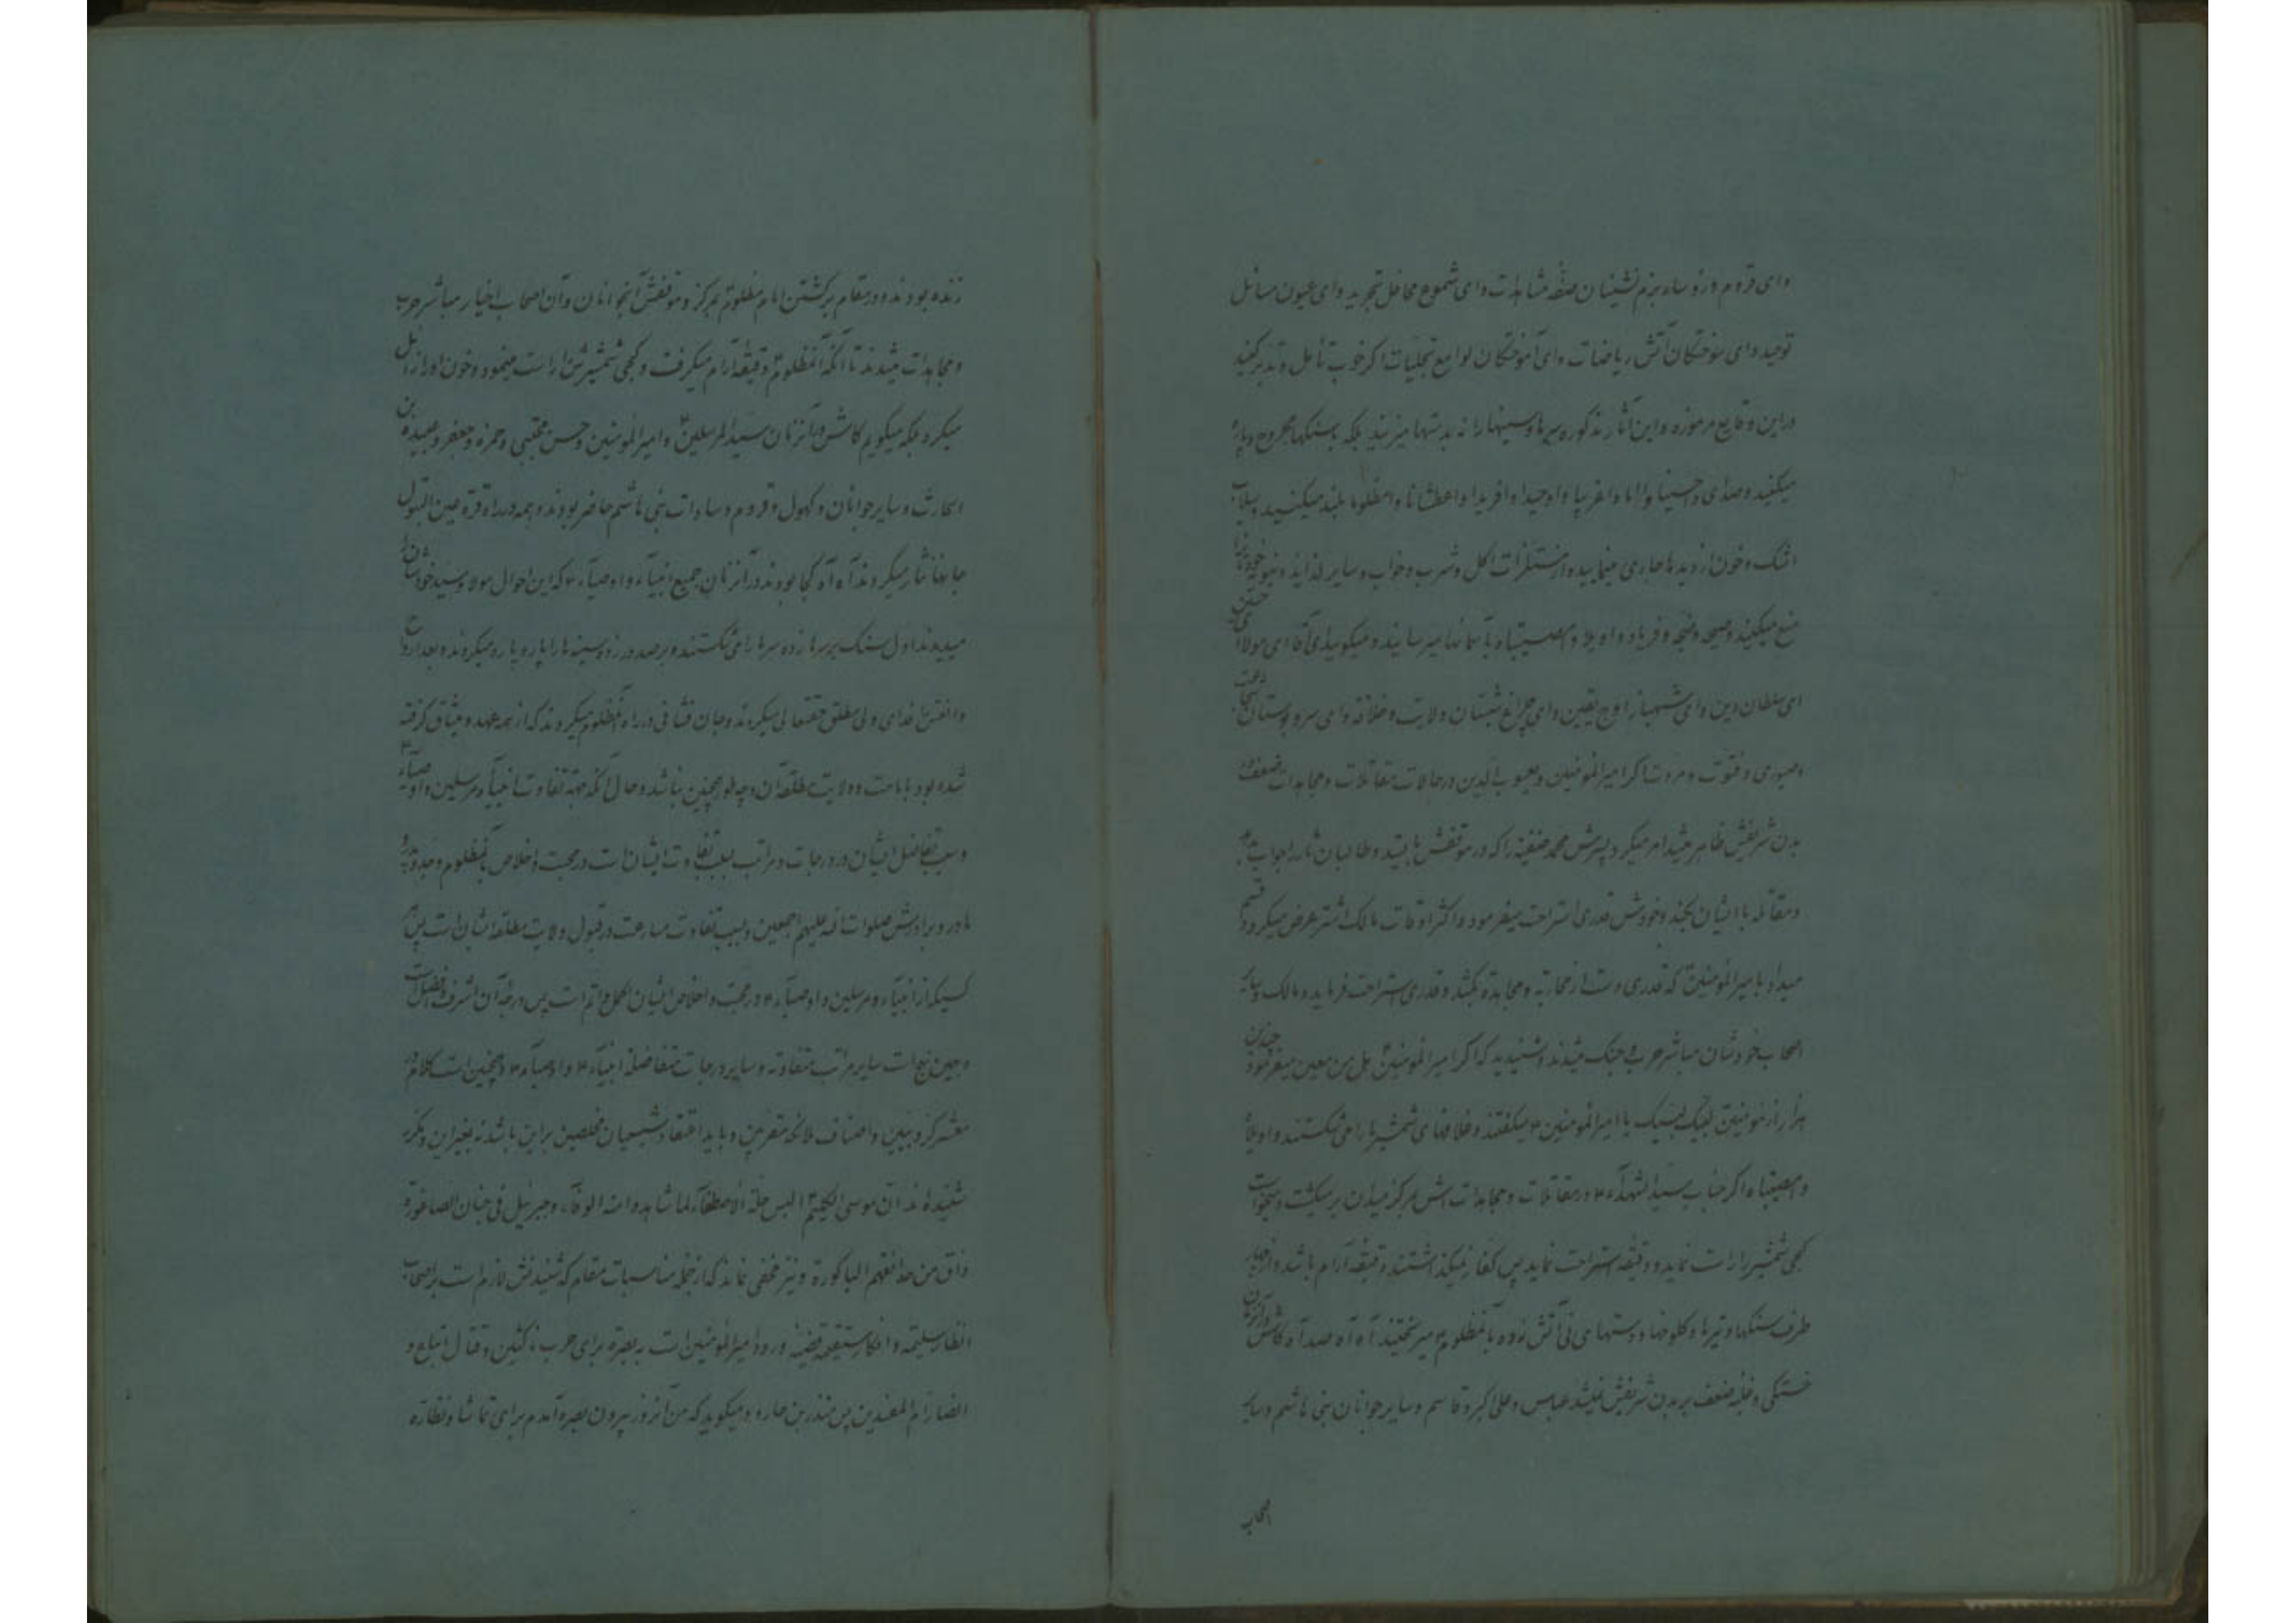 وای قروم ورؤساء بزم نشینان صفّه مشاهدت وای شموع محافل تجرید وای عیون مسائل
توحید وای سوختکان آتش ریاضات وای آموختکان لوامع تجلیات اکر خوب تأمل و تدبر کنید
دراین وقایع مرموزه واین آثار مذکوره سرها وسینها را نه بدستها میزنید بلکه بسنکها مجروح و پاره
میکنید وصدای واحسینا واغریبا واوحیدا وافریدا واعطشانا وامظلوما بلند میکنید وسیلاب
اشک وخون از دیدها جاری مینمایید واز مستلذات اکل وشرب وخواب وسایر لذاید دنیویه خود را
منع میکنید وصیحه وضجه وفریاد واویلا وامصیبتاه بآسمانها میرسانید ومیکویید ای آقا ای مولا
ای سلطان دین وای شهباز اوج یقین وای چراغ شبستان ولایت وخلافه وای سرو بوستان شجاعت
وصبوری وفتوت ومروت اکر امیرالمؤمنین ویعسوب الدین در حالات مقاتلات ومجاهدات ضعف در
بدن شریفش ظاهر میشد امر میکرد پسرش محمد حنفیه را که در موقفش بایستد وطالبان را جواب بدهد
ومقاتله با ایشان بکند وخودش قدری استراحت میفرمود واکثر اوقات مالک اشتر عرض میکرد وقسم
میداد بامیرالمؤمنین که قدری دست از محاربه ومجاهده بکشد وقدری استراحت فرماید ومالک وسایر
اصحاب خودشان مباشر حرب وجنک میشدند وشنیدید که اکر امیرالمؤمنین هل من معین میفرمود چندین
هزار از مؤمنین لبیک لبیک یا امیرالمؤمنین میکفتند وغلافهای شمشیرها را می شکستند واویلا
وامصیبتاه اکر جناب سیدالشهدآء در مقاتلات ومجاهداتش بمرکز میدان برمیکشت ومیخواست
کجی شمشیر را راست نماید ودقیقه استراحت نماید پس کفار نمیکذاشتند دقیقه آرام باشد واز چهار
طرف سنکها وتیرها وکلوخها ودستهای نی آتش زده بآنمظلوم میریختند آه آه صد آه کاش در آنزمان
خستکی وغلبه ضعف بر بدن شریفش میشد عباس وعلی اکبر وقاسم وسایر جوانان بنی هاشم وسایر
اصحاب
زنده بودند ودر مقام برکشتن امام مظلوم بمرکز وموقفش آنجوانان وآن اصحاب اخیار مباشر حرب
ومجاهدات میشدند تا آنکه آنمظلوم دقیقه آرام میکرفت وکجی شمشیرش را راست مینمود وخون او را زایل
میکرد بلکه میکویم کاش در آنزمان سیدالمرسلین وامیرالمؤمنین وحسن مجتبی وحمزه وجعفر وعبیدة بن
الحارث وسایر جوانان وکهول وقروم وسادات بنی هاشم حاضر بودند وهمه در راه قرة عین البتول
جانها نثار میکردند آه آه کجا بودند در آنزمان جمیع انبیآء واوصیآء که این احوال مولا وسید خودشان را
میدیدند اول سنک برسرها زده سرها را می شکستند وبر صدور زده سینه ها را پاره پاره میکردند وبعد ارواح
وانفس را فدای ولی مطلق حقتعالی میکردند وجان فشانی در راه آنمظلوم میکردند که از همه عهد ومیثاق کرفته
شده بود بامامت وولایت مطلقه آن وچه طور همچنین نباشد وحال آنکه جهة تفاوت انبیآء ومرسلین واوصیآء
وسبب تفاضل ایشان در درجات ومراتب بسبب تفاوت ایشان است در محبت واخلاص بآنمظلوم وجد وپدر و
مادر وبرادرش صلوات الله علیهم اجمعین وبسبب تفاوت مسارعت در قبول ولایت مطلقه ایشان است پس
کسیکه از انبیآء ومرسلین واوصیآء در محبت واخلاص ایشان اکمل واتم است پس درجه آن اشرف وافضل است
وبهمین نهج است سایر مراتب متفاوته وسایر درجات متفاضله انبیآء واوصیآء وهمچنین است کلام در
معشر کروبیین واصناف ملائکه مقربین وباید اعتقاد شیعیان مخلصین براین باشد نه بغیر این ومکرر
شنیده اند ان موسی الکلیم البس حلة الاصطفآء لما شاهدوا منه الوفآء وجبرئیل فی جنان الصاغورة
ذاق من حدائقهم الباکورة ونیز مخفی نماند که از جمله مناسبات مقام که شنیدنش لازم است بر اصحاب
انظار سلیمه وافکار مستقیمه قضیه ورود امیرالمؤمنین است به بصره برای حرب ناکثین وقتال اتباع و
انصار ام المفسدین پس منذر بن جارود میکوید که من آنروز بیرون بصره آمدم برای تماشا ونظاره